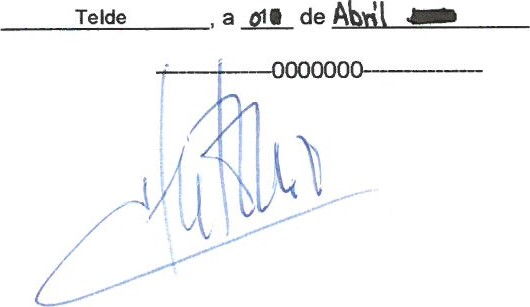 Telde, a 01 de Abril
---------------0000000---------------